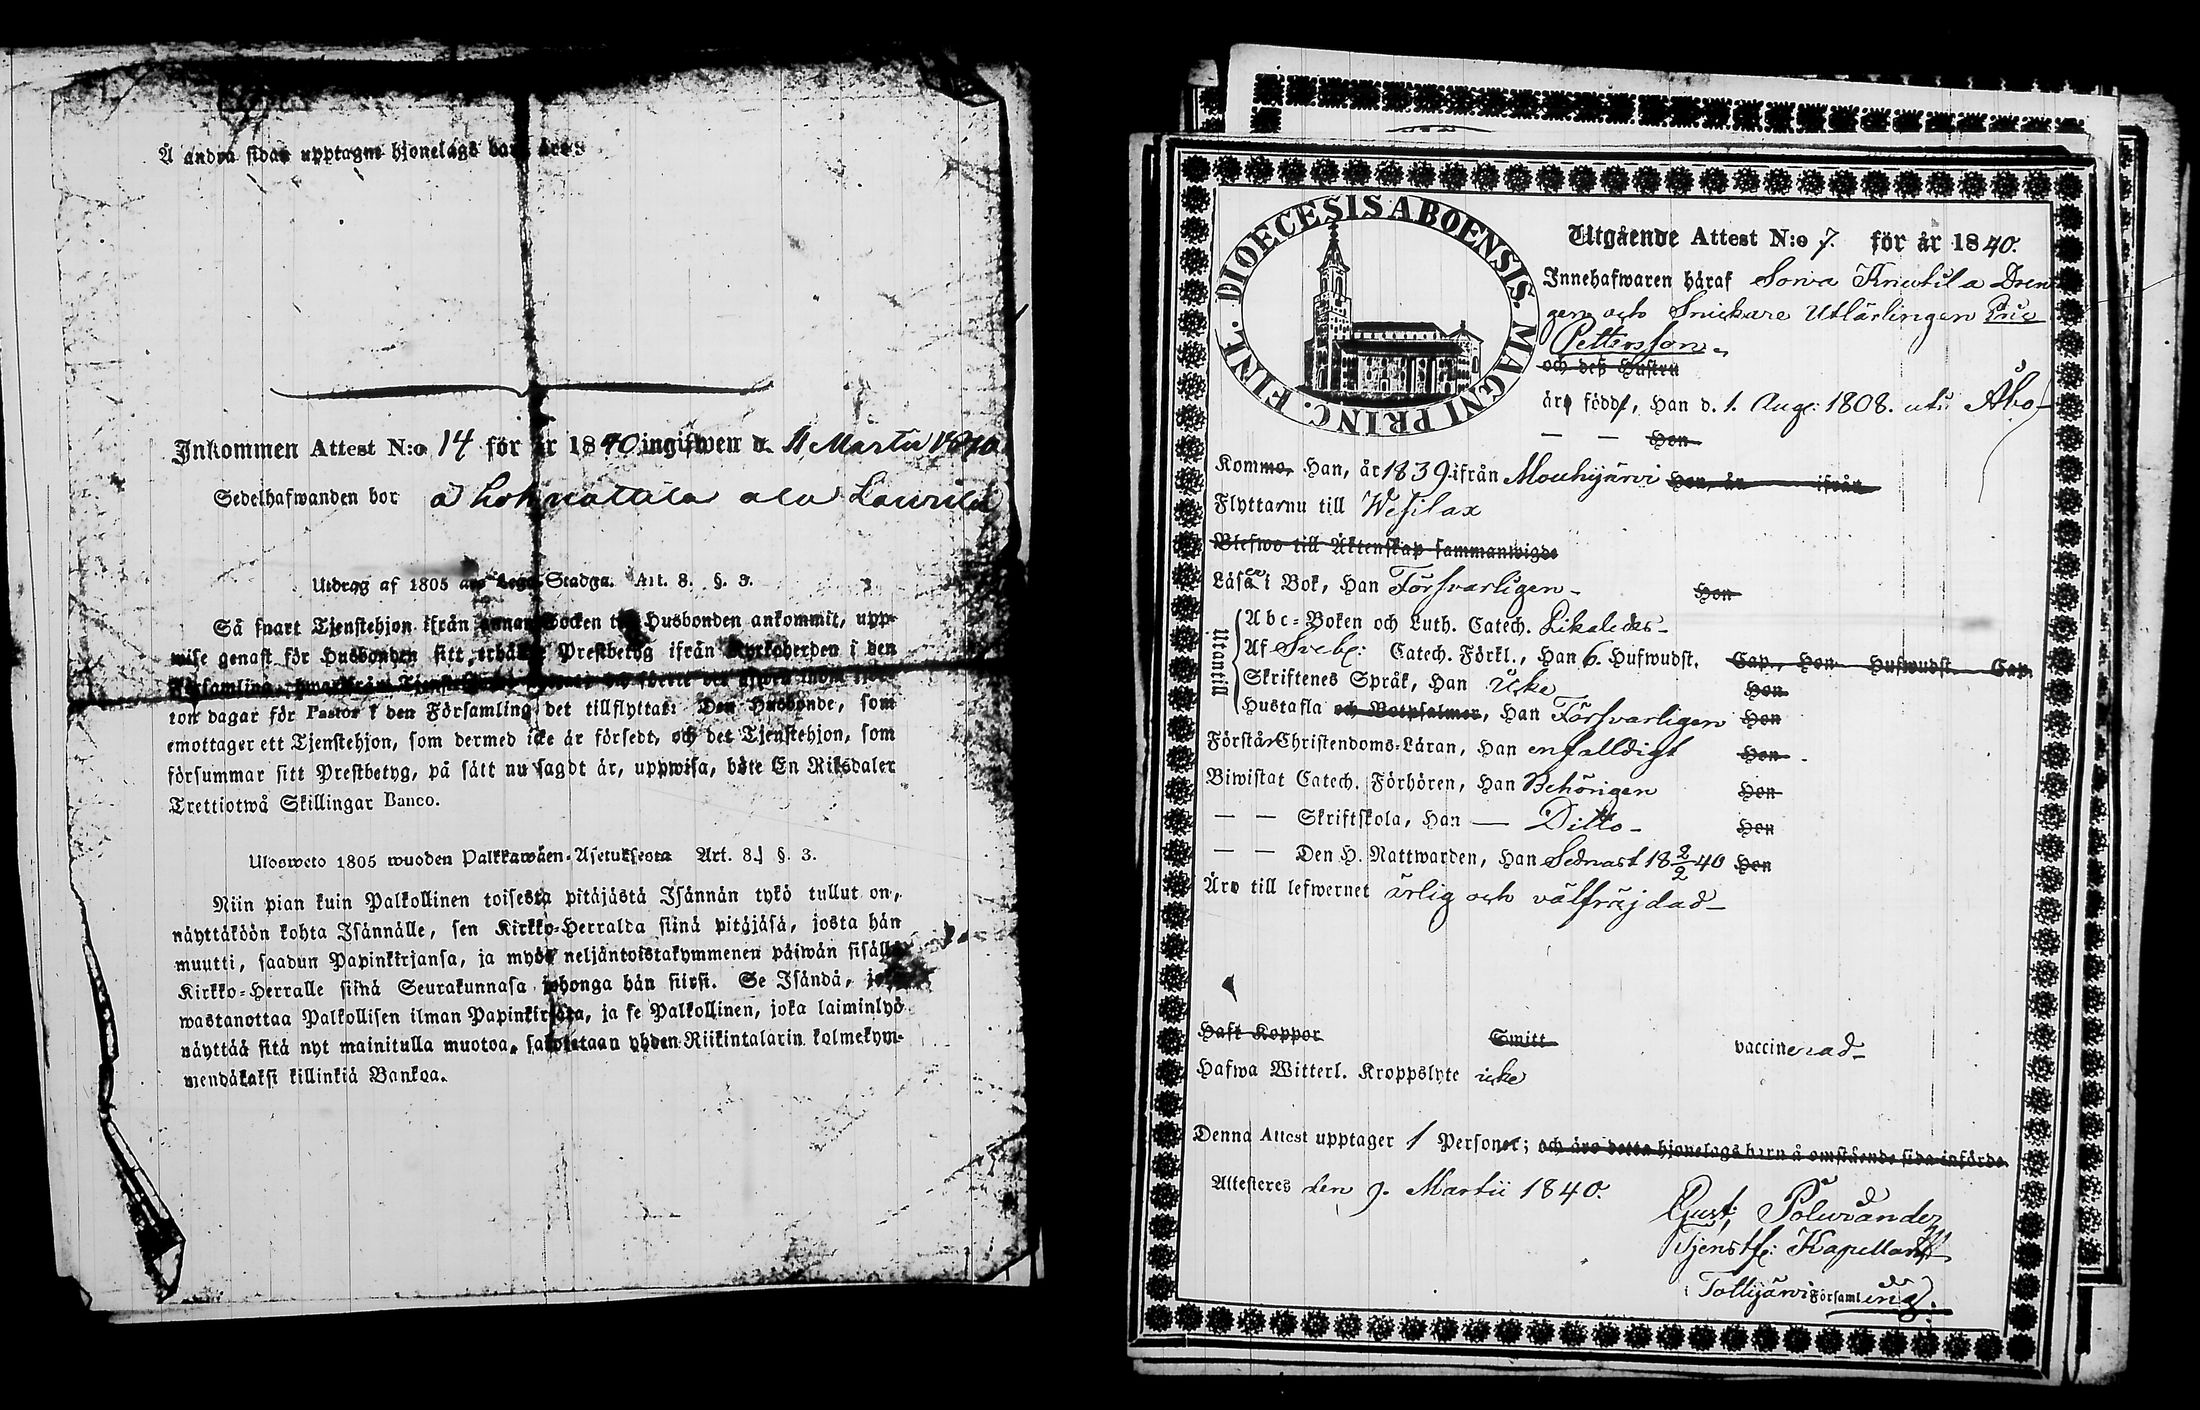 Å andra sidan upptagne hjonelags barn äro:
Inkommen Attest N:o 14 för år 1840 ingifwen d. 11 Martii 1840
Sedelhafwanden bor å
Utdrag af 1805 års Lego-Stadga. Art. 8. §. 3.
Så snart Tjenstehjon ifrån annan Socken till Husbonden ankommit, upp-
wise genast för Husbonden sitt, erhållne Prestbetyg ifrån Kyrkoherden i den
Församling,
ton dagar för Pastor i den Församling det tillflyttat: Den Husbonde, som
emottager ett Tjenstehjon, som dermed icke är försedt, och det Tjenstehjon, som
försummar sitt Prestbetyg, på sätt nu sagdt är, uppwisa, böte En Riksdaler
Trettiotwå Skillingar Banco.
Ulosweto 1805 wuoden Palkkawäen-Asetuksesta Art. 8. §. 3.
Niin pian kuin Palkollinen toisesta pitäjästä Isännän tykö tullut on,
näyttäköön kohta Isännälle, sen Kirkko-Herralda siinä pitäjäsä, josta hän
muutti, saadun Papinkirjansa, ja myös neljäntoistakymmenen päiwän sisällä
Kirkko-Herralle siinä Seurakunnasa johonga hän siirsi. Se Isändä, joka
wastanottaa Palkollisen ilman Papinkirjata, ja se Palkollinen, joka laiminlyö
näyttää sitä nyt mainitulla muotoa, sakotetaan yhden Riikintalarin kolmekym-
mendäkaksi killinkiä Bankoa.
DIOECESIS ABOENSIS. MAGNI PRINC. FINL.
Utgående Attest N:o 7. för år 1840.
Innehafwaren häraf Sorva Knuutila Dren
gen och Snickare Utlärlingen Eric
Pettersson
och deß Hustru
äro födde, Han d. 1. Aug: 1808. uti Åbo
— — Hon
Komme, Han, år 1839. ifrån Mouhijärvi Hon, år ifrån
Flyttarnu till Wesilax
Blefwo till Äktenskap sammanwigde
Läsa i Bok, Han Försvarligen — Hon
Utantill
Abc-Boken och Luth. Catech. Likaledes —
Af Sveb: Catech. Förkl., Han 6. Hufwudst. Cap., Hon Hufwudst. Cap.
Skriftenes Språk, Han Icke Hon
Hustafla och Botpsalmer, Han Försvarligen Hon
Förstår Christendoms-Läran, Han enfalldigt Hon
Biwistat Catech. Förhören, Han Behörigen Hon
— — Skriftskola, Han — Ditto — Hon
— — Den H. Nattwarden, Han Sednast 18 2/2 40 Hon
Äro till lefwernet ärlig och välfräjdad —
Haft Koppor Smitt vaccinerad —
Hafwa Witterl. Kroppslyte icke
Denna Attest upptager 1 Personer; och äro detta hjonelags barn å omstående sida införde.
Attesteres den 9. Martii 1840.
Gust: Polviander
Tjenstf: Kapellan
i Tottijärvi Församling.